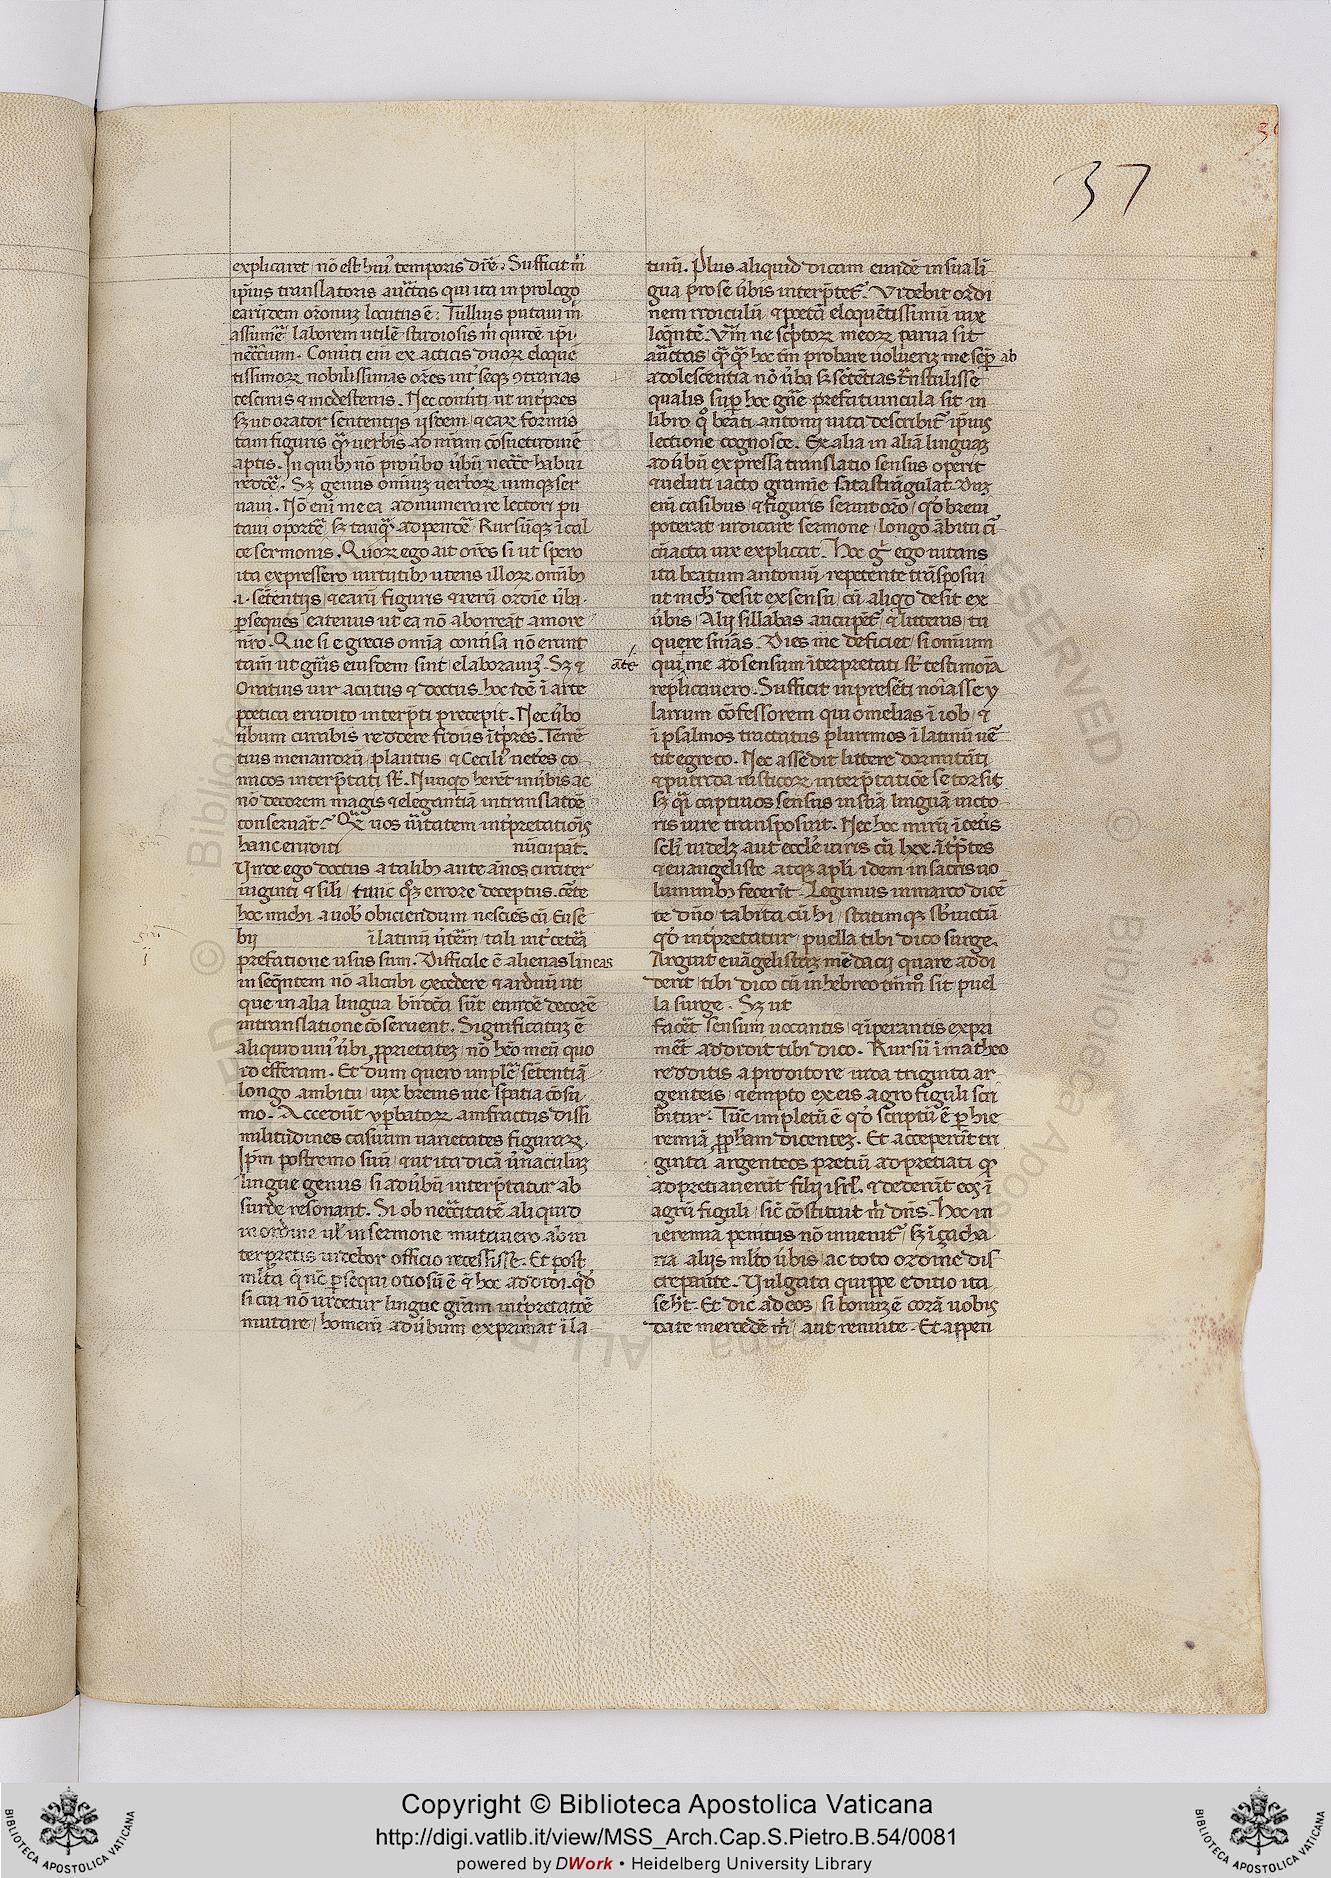 37
explicaret / nõ est huiꝰ temporis dic̃e. Sufficit m̃
ip̃ius translatoris auct̃tas qui ita in prologo
earũdem or̃onuꝫ locutus ẽ: Tullius putaui m̃
assumẽ / laborem utilẽ studiosis m̃ quidẽ ip̃i
nec̃cium. Conũti eni ex atticis duorꝫ eloquẽ
tissimorꝫ nobilissimas or̃es int̃ seqꝫ ꝯtrarias
eschinis ⁊ modestenis. Nec conũti ut int̃pres
sꝫ ut orator sententijs ijsdem / ⁊ eaꝝ formis
tam figuris q̃ꝫ uerbis ad nr̃am cõsuetudinẽ
aptis. In quibꝫ nõ pro ũbo ũbũ nec̃c̃e habui
redde͂. Sꝫ genus omniuꝫ uerborꝫ uimqꝫ ser
uaui. Nõ eni me ea adnumerare lectori pu
taui oporte͂ / sꝫ tanq̃ꝫ adpende͂. Rursũqꝫ ĩ cal
ce sermonis. Quorꝫ ego ait or̃es si ut spero
ita expressero uirtutibꝫ utens illorꝫ omĩbꝫ
.i. sẽtẽntijs / ⁊ earũ figuris ⁊ rerũ ordĩe ũba
ꝑsequẽs / eatenus ut ea nõ aborreãt amore
nr̃o. Que si e grecis omĩa conũsa nõ erunt
tam̃ ut gñis eiusdem sint / elaborauimꝰ. Sꝫ ⁊
Oratius uir acutus ⁊ doctus hoc idẽ ĩ arte
poetica erudito interp̃ti precepit. Nec ũbo
ũbum curabis reddere fidus ĩt̃pres. Terẽ
tius menandrũ / plautus / ⁊ Ceciliꝰ ueteres co
micos interp̃tati st̃. Nunquid herẽt in ũbis ac
nõ decorem magis ⁊ elegantiã in translatõe
conseruãt. Q̃ꝫ uos ũitatem int̃pretatiõis
hanc eruditi nũcupãt.
Unde ego doctus a talibꝫ ante ãnos circiter
uiginti / ⁊ sili / tunc qꝫ errore deceptus. cẽte
hoc michi a uobis obiciendum nesciẽs cũ Euse
bij ĩ latinũ ũtẽm tali int̃ cetẽa
prefatione usus sum. Difficile ẽ alienas lineas
insequẽntem nõ alicubi excedere ⁊ arduũ ut
que in alia lingua bñ dicta sũt / eundẽ decorẽ
in translatione cõseruent. Significatuꝫ ẽ
aliquid uniꝰ ũbi ꝓprietateꝫ / nõ hẽo meũ quo
id efferam. Et dum quero imple͂ sẽtẽntiã
longo ambitu / uix breuis uie spatia cõsũ
mo. Accedũt yꝑbatorꝫ amfractus dissi
militudines casuum uarietates figurarꝫ.
Ip̃m postremo suũ / ⁊ ut ita dicã ũnaculuꝫ
lingue genus / si ad ũbũ interp̃tatur ab
surde resonant. Si ob nec̃citatẽ aliquid
in ordine uł in sermone mutauero / ab in
terpretis uidebor officio recessisse. Et post
ml̃ta q̃ nũc ꝑsequi otiosũ ẽ ⁊ hoc addidi. qd̃
si cui nõ uidetur lingue gr̃am int̃pretatiõe
mutare / homerũ ad ũbum exprimat ĩ la
tinũ. Plus aliquid dicam eundẽ in sua lĩ
gua prose ũbis interp̃tet̃. Videbit ordi
nem ridiculũ / ⁊ poetã eloquẽtissimũ uix
loq̃ntẽ. Vm̃ ne sc̃ptorꝫ meorꝫ parua sit
auct̃tas / q̃ꝫq̃ꝫ hoc tm̃ probare uolueriꝫ me semꝑ ab
adolescentia nõ ũba sꝫ sẽtẽtias t̃nstulisse
qualis suꝑ hoc gñe prefatiuncula sit in
libro qͦ beati antonij uita describit̃ ip̃ius
lectione cognosce. Ex alia in aliã linguaꝫ
ad ũbũ expressa translatio sensus operit
⁊ ueluti iacto gramie sata strãgulat. Duꝫ
eni casibus ⁊ figuris seruit or̃o / qd̃ breui
poterat indicare sermone / longo ãbitu ci̇̃
cũacta uix explicat. Hoc gͥ ego uitans
ita beatum antoniũ repetente trãsposui
ut nich̃ desit ex sensu / cũ aliqͥd desit ex
ũbis / Alij sillabas aucupẽt̃ / ⁊ litteris tu
quere sñias. Dies me deficiet / si omnium
āte
qui me ad sensum ĩterpretati st̃ testimoĩa
replicauero. Sufficit in presẽti noĩasse y
larium cõfessorem qui omelias ĩ iob / ⁊
ĩ psalmos tractatus plurimos ĩ latinũ ũe
tit e greco. Nec assedit littere dormitãti
⁊ putrida rusticorꝫ interp̃tatiõe se torsit
sꝫ q̃i captiuos sensus in suã linguã uicto
ris iure transposuit. Nec hoc mirũ ĩ cetẽis
sc̃li uidelꝫ aut eccle uiris cũ lxx. ĩt̃p̃tes
⁊ euangeliste atqꝫ apl̃i idem in sacris uo
luminibꝫ fecerĩt. Legimus in marco dicẽ
te dño / tabita cũ hi / statimqꝫ sb̃iuctũ
qd̃ int̃pretatur / puella tibi dico surge.
Arguit euãgelistaꝫ mẽdacij quare addi
derit / tibi dico cũ in hebreo tm̃mõ sit puel
la surge. Sꝫ ut
facẽt sensum uocantis / ⁊ ĩperantis expri
mẽt addidit tibi dico. Rursũ ĩ matheo
redditis a proditore iuda triginta ar
genteis / ⁊ empto ex eis agro figuli scri
bitur: Tũc impletũ ẽ qd̃ scriptũ ẽ ꝑ hie
remiã ꝓph̃am dicenteꝫ. Et acceperũt tri
ginta argenteos pretiũ adpretiati qͣ
adpretiauerũt filij isrl̃. ⁊ dederũt eos ĩ
agrũ figuli / sic̃ cõstituit m̃ dñs. Hoc in
ieremia penitus nõ inuenit̃ / sꝫ ĩ çacha
ria alijs ml̃to ũbis / ac toto ordine dis
crepante. Uulgata quippe editio ita
se h̃t. Et dic̃ ad eos / si bonuꝫ ẽ corã uobis
date mercedẽ m̃ / aut renuite. Et appen
Copyright © Biblioteca Apostolica Vaticana
http://digi.vatlib.it/view/MSS_Arch.Cap.S.Pietro.B.54/0081
powered by DWork • Heidelberg University Library
BIBLIOTECA APOSTOLICA VATICANA
BIBLIOTECA APOSTOLICA VATICANA